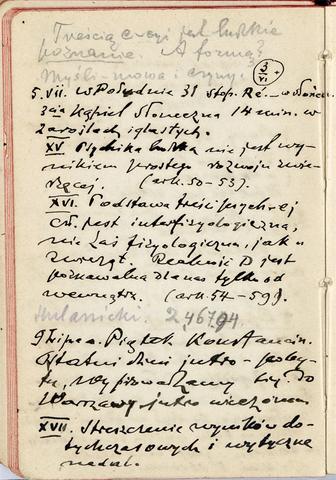 Treścią czyj jest ludzkie
poznanie. A formą?
Myśli – mowa i czyny.
3/VI
5. VII. w Południe 31 stop. Ré. – w słońcu.
3cia Kąpiel słoneczna 14 min. w
Zaroślach iglastych.
XV Psychika ludzka nie jest wy-
nikiem prostego rozwoju zwie-
rzęcej. (ark. 50–53).
XVI. Podstawa treści psychicznej
cz. jest interfizjologiczna,
nie zaś fizjologiczna, jak u
zwierząt. Realność jest
poznawalna dla nas tylko od
wewnątrz. (ark. 54–59).
246794
9 lipca. Piątek Konstancin.
Ostatni dzień jutro – poby-
tu, wyprowadzamy się do
Warszawy jutro wieczorem
XVII. Streszczenie wyników do-
tychczasowych i wytyczne
nadal.